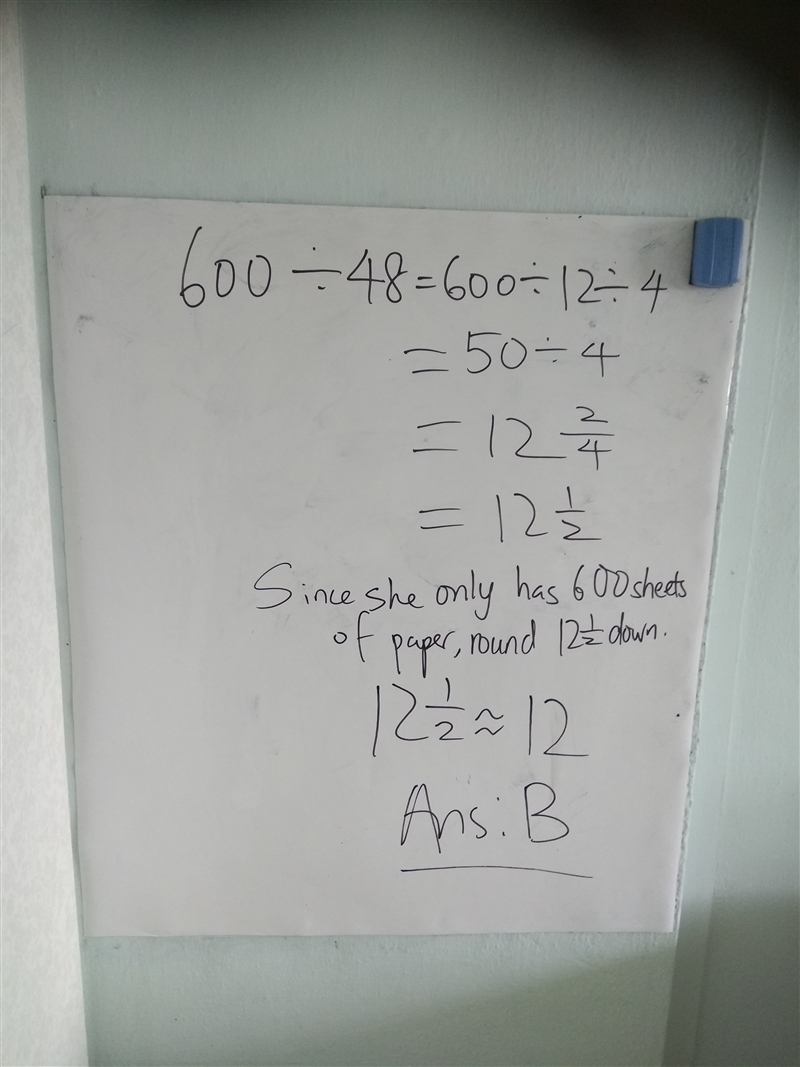 600 ÷ 48 = 600 ÷ 12 ÷ 4
= 50 ÷ 4
= 12 2/4
= 12 1/2
Since she only has 600 sheets
of paper, round 12 1/2 down.
12 1/2 ≈ 12
Ans: B